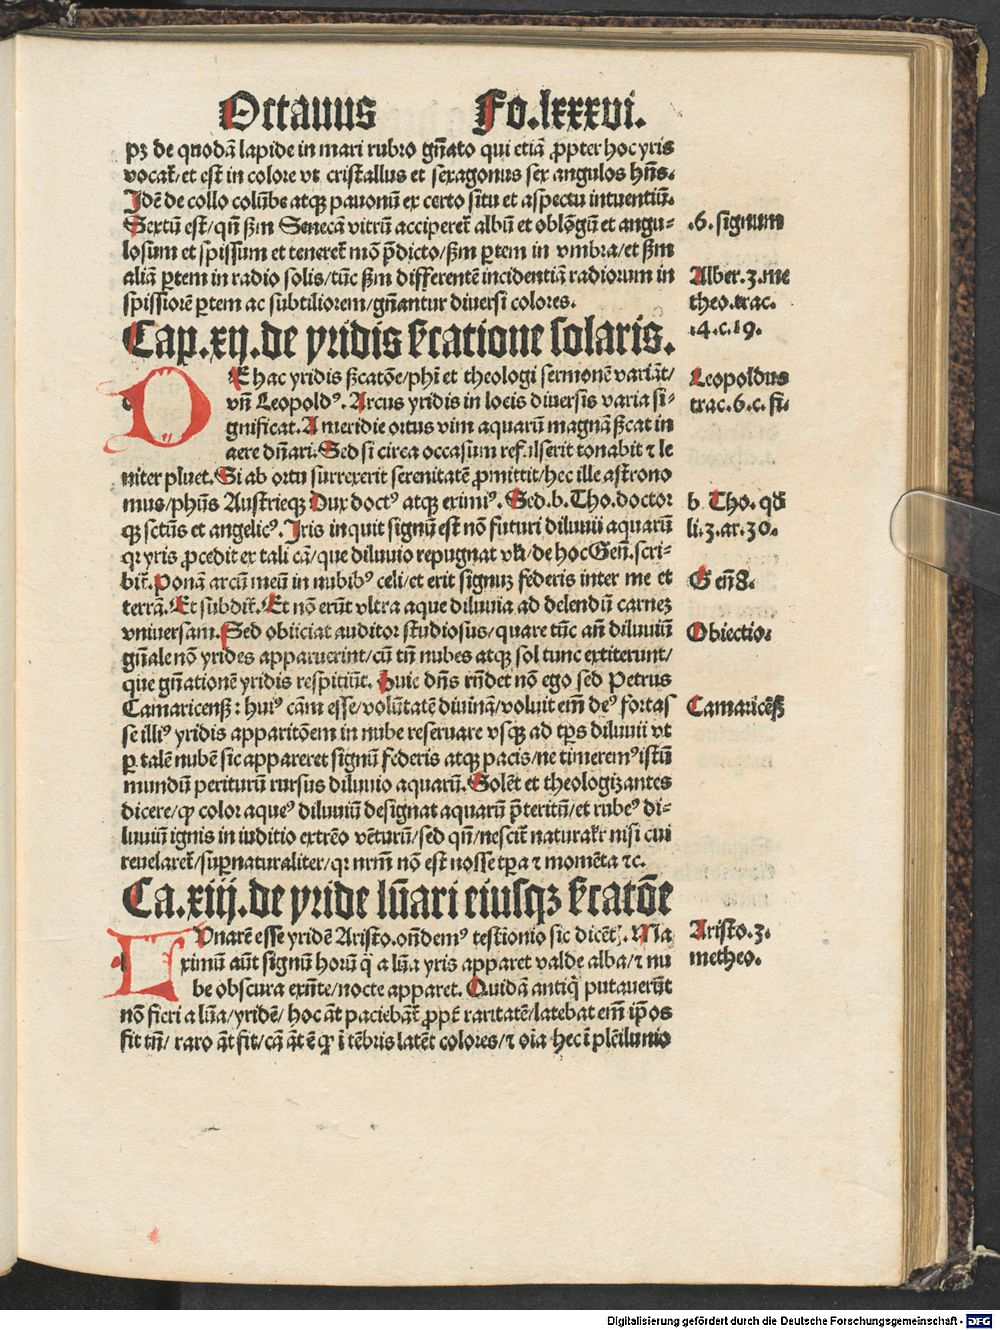 Octauus Fo.lxxxvi.
pꝫ de quodā lapide in mari rubro gn̄ato qui etiā ꝓpter hoc yris
vocat̃/et est in colore vt cristallus et sexagonus sex angulos hn̄s.
Idē de collo colūbe atqꝫ pauonū ex certo situ et aspectu intuentiū.
Sextū est/qn̄ ẜm Senecā vitrū acciperet̃ albū et oblōgū et angu⸗
losum et spissum et teneret̃ mō p̄dicto/ẜm ꝑtem in vmbra/et ẜm
aliā ꝑtem in radio solis/tūc ẜm differentē incidentiā radiorum in
spissiorē ꝑtem ac subtiliorem/gn̄antur diuersi colores.
.6. signum
Alber.3.me
theo.trac.
14.c.19.
Cap.xij.de yridis ẜcatione solaris.
DE hac yridis ẜcatōe/phi̅ et theologi sermonē variāt/
vn̄ Leopoldꝰ. Arcus yridis in locis diuersis varia si⸗
gnificat. A meridie ortus vim aquarū magnā ẜcat in
aere dn̄ari. Sed si circa occasum refulserit tonabit ⁊ le
niter pluet. Si ab ortu surrexerit serenitatē ꝓmittit/hec ille astrono
mus/phūs Austrieqꝫ Dux doctꝰ atqꝫ eximiꝰ. Sed.b.Tho.doctor
qꝫ sctūs et angelicꝰ. Iris inquit signū est nō futuri diluuii aquarū
qꝛ yris ꝓcedit ex tali cā/que diluuio repugnat vł/de hoc Geñ.scri⸗
bit̃. Ponā arcū meū in nubibꝰ celi/et erit signuꝫ federis inter me et
terrā. Et subdit̃. Et nō erūt vltra aque diluuia ad delendū carneꝫ
vniuersam. Sed obiiciat auditor studiosus/quare tūc añ diluuiū
gn̄ale nō yrides apparuerint/cū tn̄ nubes atqꝫ sol tunc extiterunt/
que gn̄ationē yridis respitiūt. Huic dn̄s rn̄det nō ego sed Petrus
Camaricenẜ: huiꝰ cām esse/volūtatē diuinā/voluit em̄ deꝰ fortas
se illiꝰ yridis apparitōem in nube reseruare vsqꝫ ad tp̄s diluuii vt
ꝑ talē nubē sic appareret signū federis atqꝫ pacis/ne timeremꝰ istū
mundū periturū rursus diluuio aquarū. Solēt et theologizantes
dicere/ꝙ color aqueꝰ diluuiū designat aquarū p̄teritū/et rubeꝰ di⸗
luuiū ignis in iuditio extrēo vēturū/sed qn̄/nescit̃ naturalr̃ nisi cui
reuelaret̃/suꝑnaturaliter/qꝛ nrm̄ nō est nosse tꝑa ⁊ momēta ⁊c.
Leopoldus
trac.6.c.fi.
b Tho. qd̄
li.3.ar.30.
Geñ8.
Obiectio.
Camaricēẜ
Ca.xiij.de yride lūari eiusqꝫ ẜcatōe
LVnarē esse yridē Aristo.on̄demꝰ testionio sic dicēt. Ma
ximū aūt signū horū q̄ a lūa yris apparet valde alba/⁊ nu
be obscura exn̄te/nocte apparet. Quidā antiq̄ putauerūt
nō fieri a lūa/yridē/ hoc āt paciebāt̃ ꝓpt̃ raritatē/latebat em̄ ip̄os
fit tn̄/ raro āt fit/cā āt ē ꝙ ī tēbris latēt colores/⁊ oīa hec ī plēilunio
Aristo.3.
metheo.
Digitalisierung gefördert durch die Deutsche Forschungsgemeinschaft - DFG